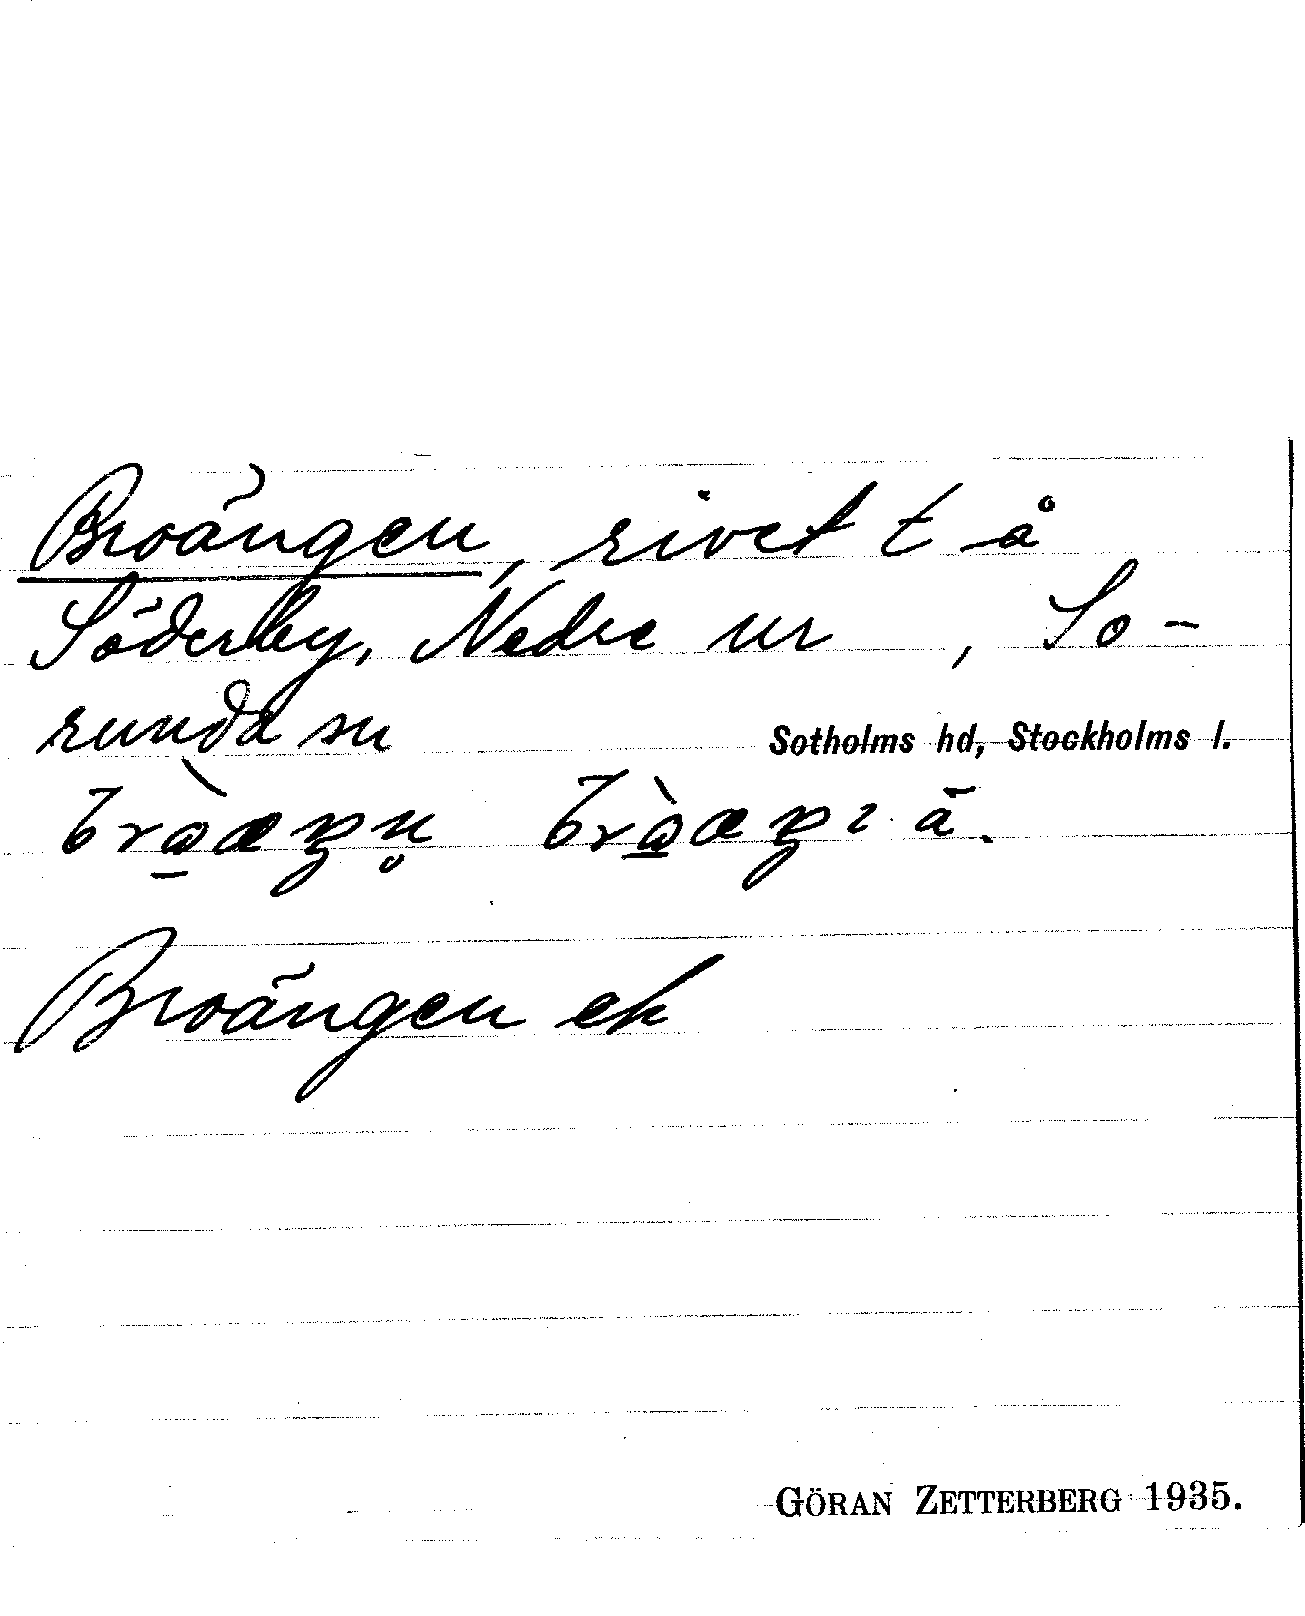 Broängen, rivet t å
Söderby, Nedre ur , So-
runda sn Sotholms hd, Stockholms l.
Broängen ek
GÖRAN ZETTERBERG 1935.